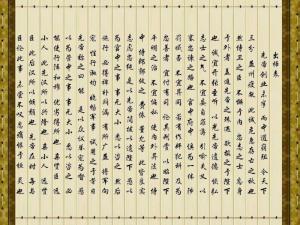 出師表
先帝创业未半 而中道崩殂 今天下
三分 益州疲敝 此诚危急存亡之秋也
然侍卫之臣不懈于内 忠志之士忘身
于外者 盖追先帝之殊遇 欲报之于陛下
也 诚宜开张圣听 以光先帝遗德 恢弘
志士之气 不宜妄自菲薄 引喻失义 以
塞忠谏之路也 宫中府中 俱为一体 陟
罚臧否 不宜异同 若有作奸犯科 及为
忠善者 宜付有司 论其刑赏 以昭陛下
平明之理 不宜偏私 使内外异法也 侍
中侍郎郭攸之 费祎 董允等 此皆良实
志虑忠纯 是以先帝简拔以遗陛下 愚以
为宫中之事 事无大小 悉以咨之 然后
施行 必得裨补阙漏 有所广益 将军向
宠 性行淑均 晓畅军事 试用之于昔日
先帝称之曰能 是以众议举宠为督 愚
以为营中之事 事无大小 悉以咨之 必
能使行阵和睦 优劣得所也 亲贤臣 远
小人 此先汉所以兴隆也 亲小人 远贤
臣 此后汉所以倾颓也 先帝在时 每与
臣论此事 未尝不叹息痛恨于桓灵也